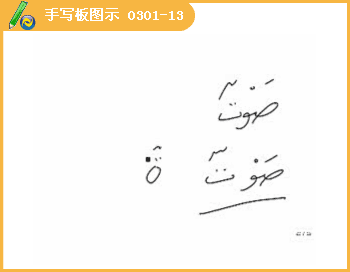 手写板图示 0301-13
صَوْت
ة صَوْت